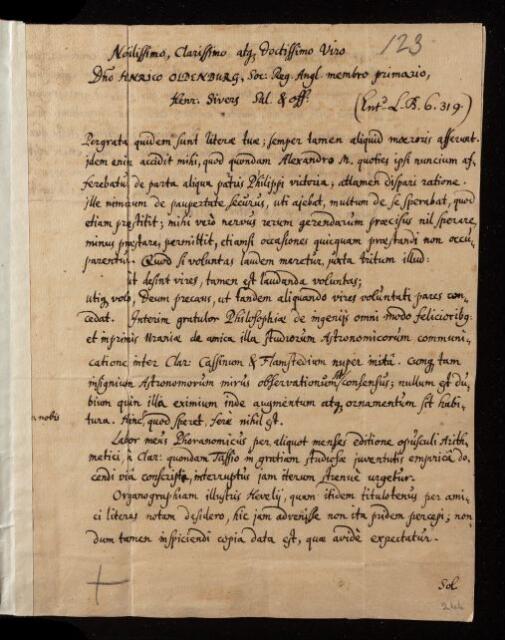 Nobilissimo, Clarissimo atq, doctissimo Viro
123
Dño HENRICO OLDENBURG, Soc: Reg. Angl. membro primario,
Henr: Sivers Sal. & off.
(Entd. L.B. 6. 319.)
Pergratæ quidem sunt literæ tuæ; semper tamen aliquid moeroris afferunt.
idem enim accidit mihi, quod quondam Alexandro M. quoties ipsi nuncium af-
ferebatur de parta aliqua patris Philippi victoria; attamen dispari ratione.
ille nimirum de paupertate, securus, uti ajebat, multum de se sperabat, quod
etiam præstitit; mihi verò nervus rerum gerendarum præcisus nil sperare,
minus præstare, permittit, etiamsi occasiones quicquam præstandi non occu-
parentur. Quod si voluntas laudem meretur, juxta tritum illud:
ut desint vires, tamen est laudanda voluntas;
utiq, volo, Deum precatus, ut tandem aliquando vires voluntati pares con-
cedat. Interim gratulor Philosophiæ de ingenijs omni modo felicioribq,
et inprimis Uraniæ de amica illa studiorum Astronomicorum communi-
catione inter Clar: Cassinum & Flamstedium nuper inita. cumq, tam
insignium Astronomorum mirus observationum sit consensus; nullum est du-
bium quin illa eximium inde augmentum atq, ornamentum sit habi-
tura. Hinc, quod speret, ferè nihil est.
a nobis
Labor meus Phoranomicus per aliquot menses editione opusculi Arith-
metici, à Clar: quondam Tassio in gratiam studiosæ juventutis empirica do-
cendi via conscripti, interruptus jam iterum strenuè urgetur.
Organographiam illustris Hevelij, quam itidem titulotenus per ami-
ci literas notam desidero, hic jam advenisse non ita pridem percepi; non-
dum tamen inspiciendi copia data est, quæ avidè expectatur.
Sol
244